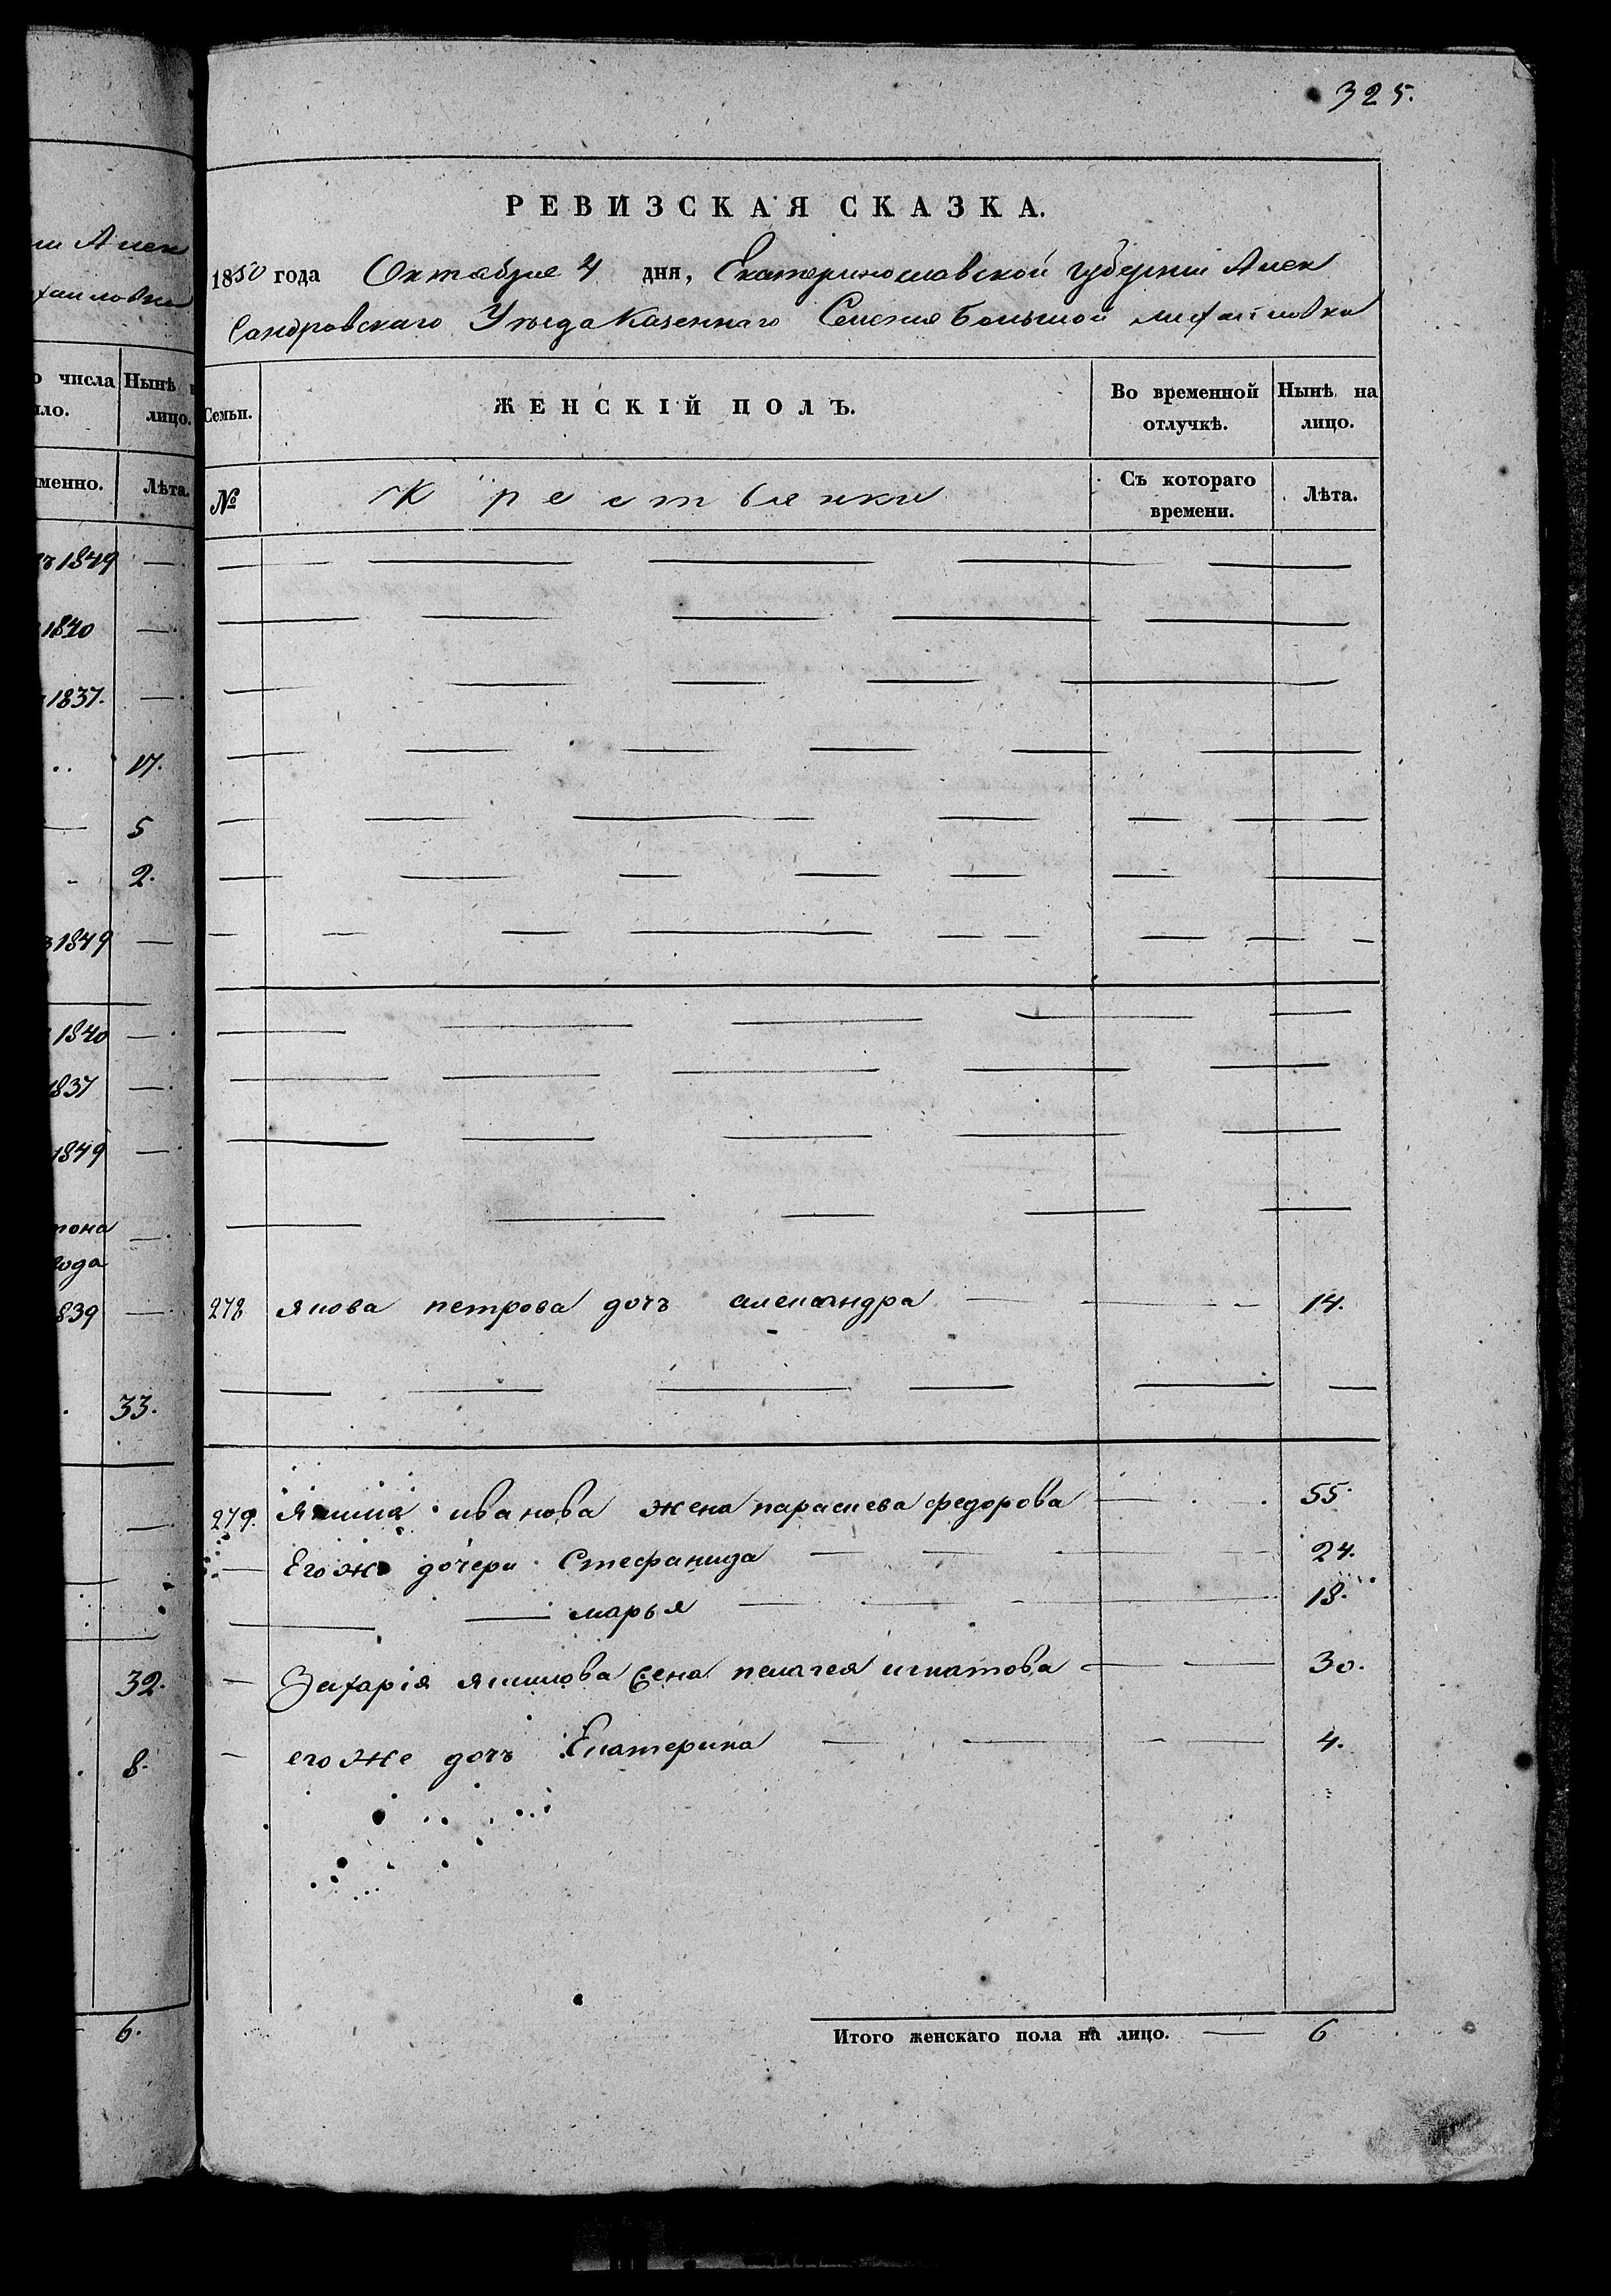 325.
РЕВИЗСКАЯ СКАЗКА.
1850 года Октебрие 4 дня, Екатеринославской губернии Алек
Сандровскаго Уезда Казеннаго Селения Большой михайловки
Семьи. ЖЕНСКІЙ ПОЛЪ. Во временной отлучкѣ. Нынѣ на лицо.
№ Крестьянки Съ котораго времени. Лѣта.
278 якова петрова дочъ александра 14.
279. Якима иванова жена параскева федорова 55.
Его же дочери Стефанида 24.
марья 18.
Захарія якимова жена пелагея игнатова 30.
его же дочъ Екатерина 4.
Итого женскаго пола на лицо. 6
о числа Нынѣ
ло. лицо.
менно. Лѣта.
1849
1840
1837.
17.
5
2.
1849
1840
1837
1849
года
839
33.
32.
8.
6.